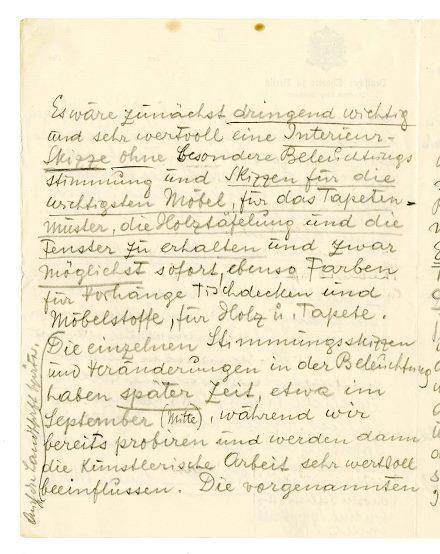 Es wäre zunächst dringend wichtig
und sehr wertvoll eine Interieur-
Skizze ohne besondere Beleuchtungs
stimmung und Skizzen für die
wichtigsten Möbel, für das Tapeten-
muster, die Holztäfelung und die
Fenster zu erhalten und zwar
möglichst sofort, ebenso Farben
für Vorhänge Tischdecken und
Möbelstoffe, für Holz u. Tapete.
Die einzelnen Stimmungsskizzen
und Veränderungen in der Beleuchtung
haben später Zeit, etwa im
September (Mitte), während wir
bereits probiren und werden dann
die künstlerische Arbeit sehr wertvoll
beeinflussen. Die vorgenannten